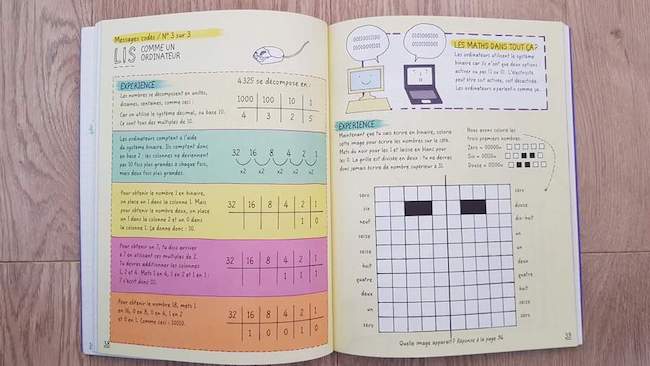 Messages codés / N° 3 sur 3
LIS COMME UN
ORDINATEUR
EXPÉRIENCE
Les nombres se décomposent en unités,
dizaines, centaines, comme ceci :
Car on utilise le système décimal, ou base 10.
Ce sont tous des multiples de 10.
4325 se décompose en :
1000 100 10 1
4 3 2 5
Les ordinateurs comptent à l'aide
du système binaire. Ils comptent donc
en base 2 : les colonnes ne deviennent
pas 10 fois plus grandes à chaque fois,
mais deux fois plus grandes.
32 16 8 4 2 1
x2 x2 x2 x2 x2
Pour obtenir le nombre 2 en binaire,
on place un 1 dans la colonne 2. Mais
pour obtenir le nombre deux, on place
un 1 dans la colonne 2 et un 0 dans
la colonne 1. Ça donne donc : 10.
32 16 8 4 2 1
1 0
Pour obtenir un 7, tu dois arriver
à 7 en utilisant ces multiples de 2.
Tu devras additionner les colonnes
1, 2 et 4. Mets 1 en 4, 1 en 2 et 1 en 1 :
7 s'écrit donc 111.
32 16 8 4 2 1
1 1 1
Pour obtenir le nombre 18, mets 1
en 16, 0 en 8, 0 en 4, 1 en 2
et 0 en 1. Comme ceci : 10010.
32 16 8 4 2 1
1 0 0 1 0
38
LES MATHS DANS TOUT ÇA ?
Les ordinateurs utilisent le système
binaire car ils n'ont que deux options :
activer ou pas (1 ou 0). L'électricité
peut être soit activée, soit désactivée.
Les ordinateurs "parlent" comme ça.
EXPÉRIENCE
Maintenant que tu sais écrire en binaire, colorie
cette image pour écrire les nombres sur le côté.
Mets du noir pour les 1 et laisse en blanc pour
les 0. La grille est divisée en deux : tu ne devras
donc jamais écrire de nombre supérieur à 31.
Nous avons colorié les
trois premiers nombres.
Zéro = 00000
Six = 00110
Douze = 01100
zéro zéro
six douze
neuf dix-huit
seize un
seize un
huit
quatre quatre
deux huit
un seize
zéro zéro
Quelle image apparaît ? Réponse à la page 96
39